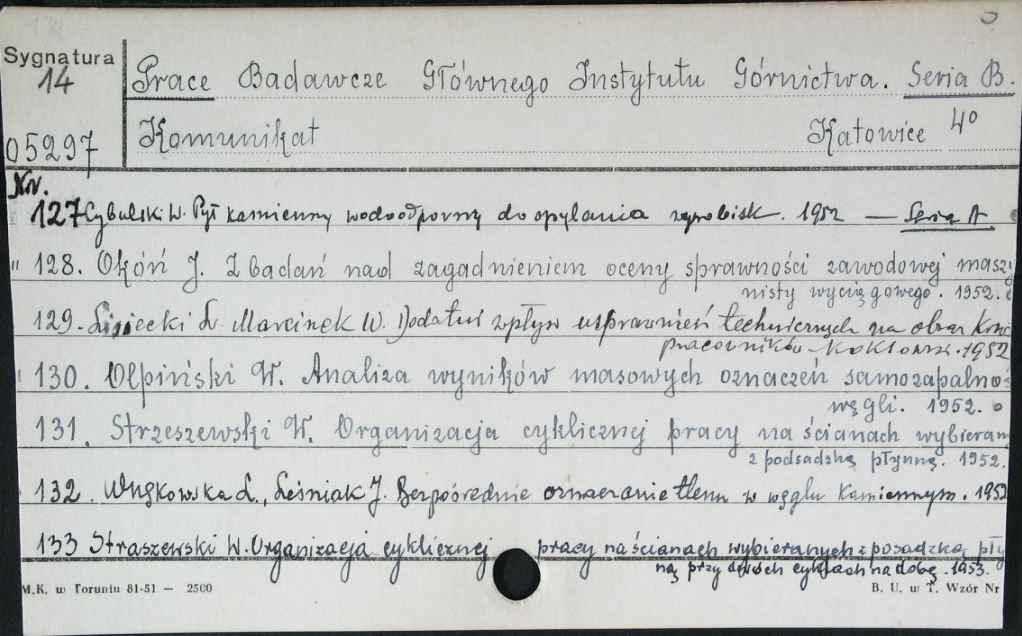 Sygnatura
14
05297
Prace Badawcze Głównego Instytutu Górnictwa. Seria B.
Komunikat Katowice 4°
Nr.
127 Cybulski W. Pył kamienny wodoodporny do opylania wyrobisk. 1952 — Seria A
" 128. Okóń J. Z badań nad zagadnieniem oceny sprawności zawodowej maszy
nisty wyciągowego. 1952.
129. Lisiecki L. Marcinek W. Dodatni wpływ usprawnień technicznych na obraz krwi
pracowników 1952
130. Olpiński W. Analiza wyników masowych oznaczeń samozapalnoś
węgli. 1952.
131. Strzeszewski W. Organizacja cyklicznej pracy na ścianach wybieran
z podsadzką płynną. 1952.
132. L., Leśniak J. Bezpośrednie oznaczanie tlenu w węglu kamiennym. 1952
133 Straszewski W. Organizacja cyklicznej pracy na ścianach wybieranych z posadzką pły
ną przy dwóch cyklach na dobę. 1953.
M.K. w Toruniu 81-51 — 2500 B. U. w T. Wzór Nr